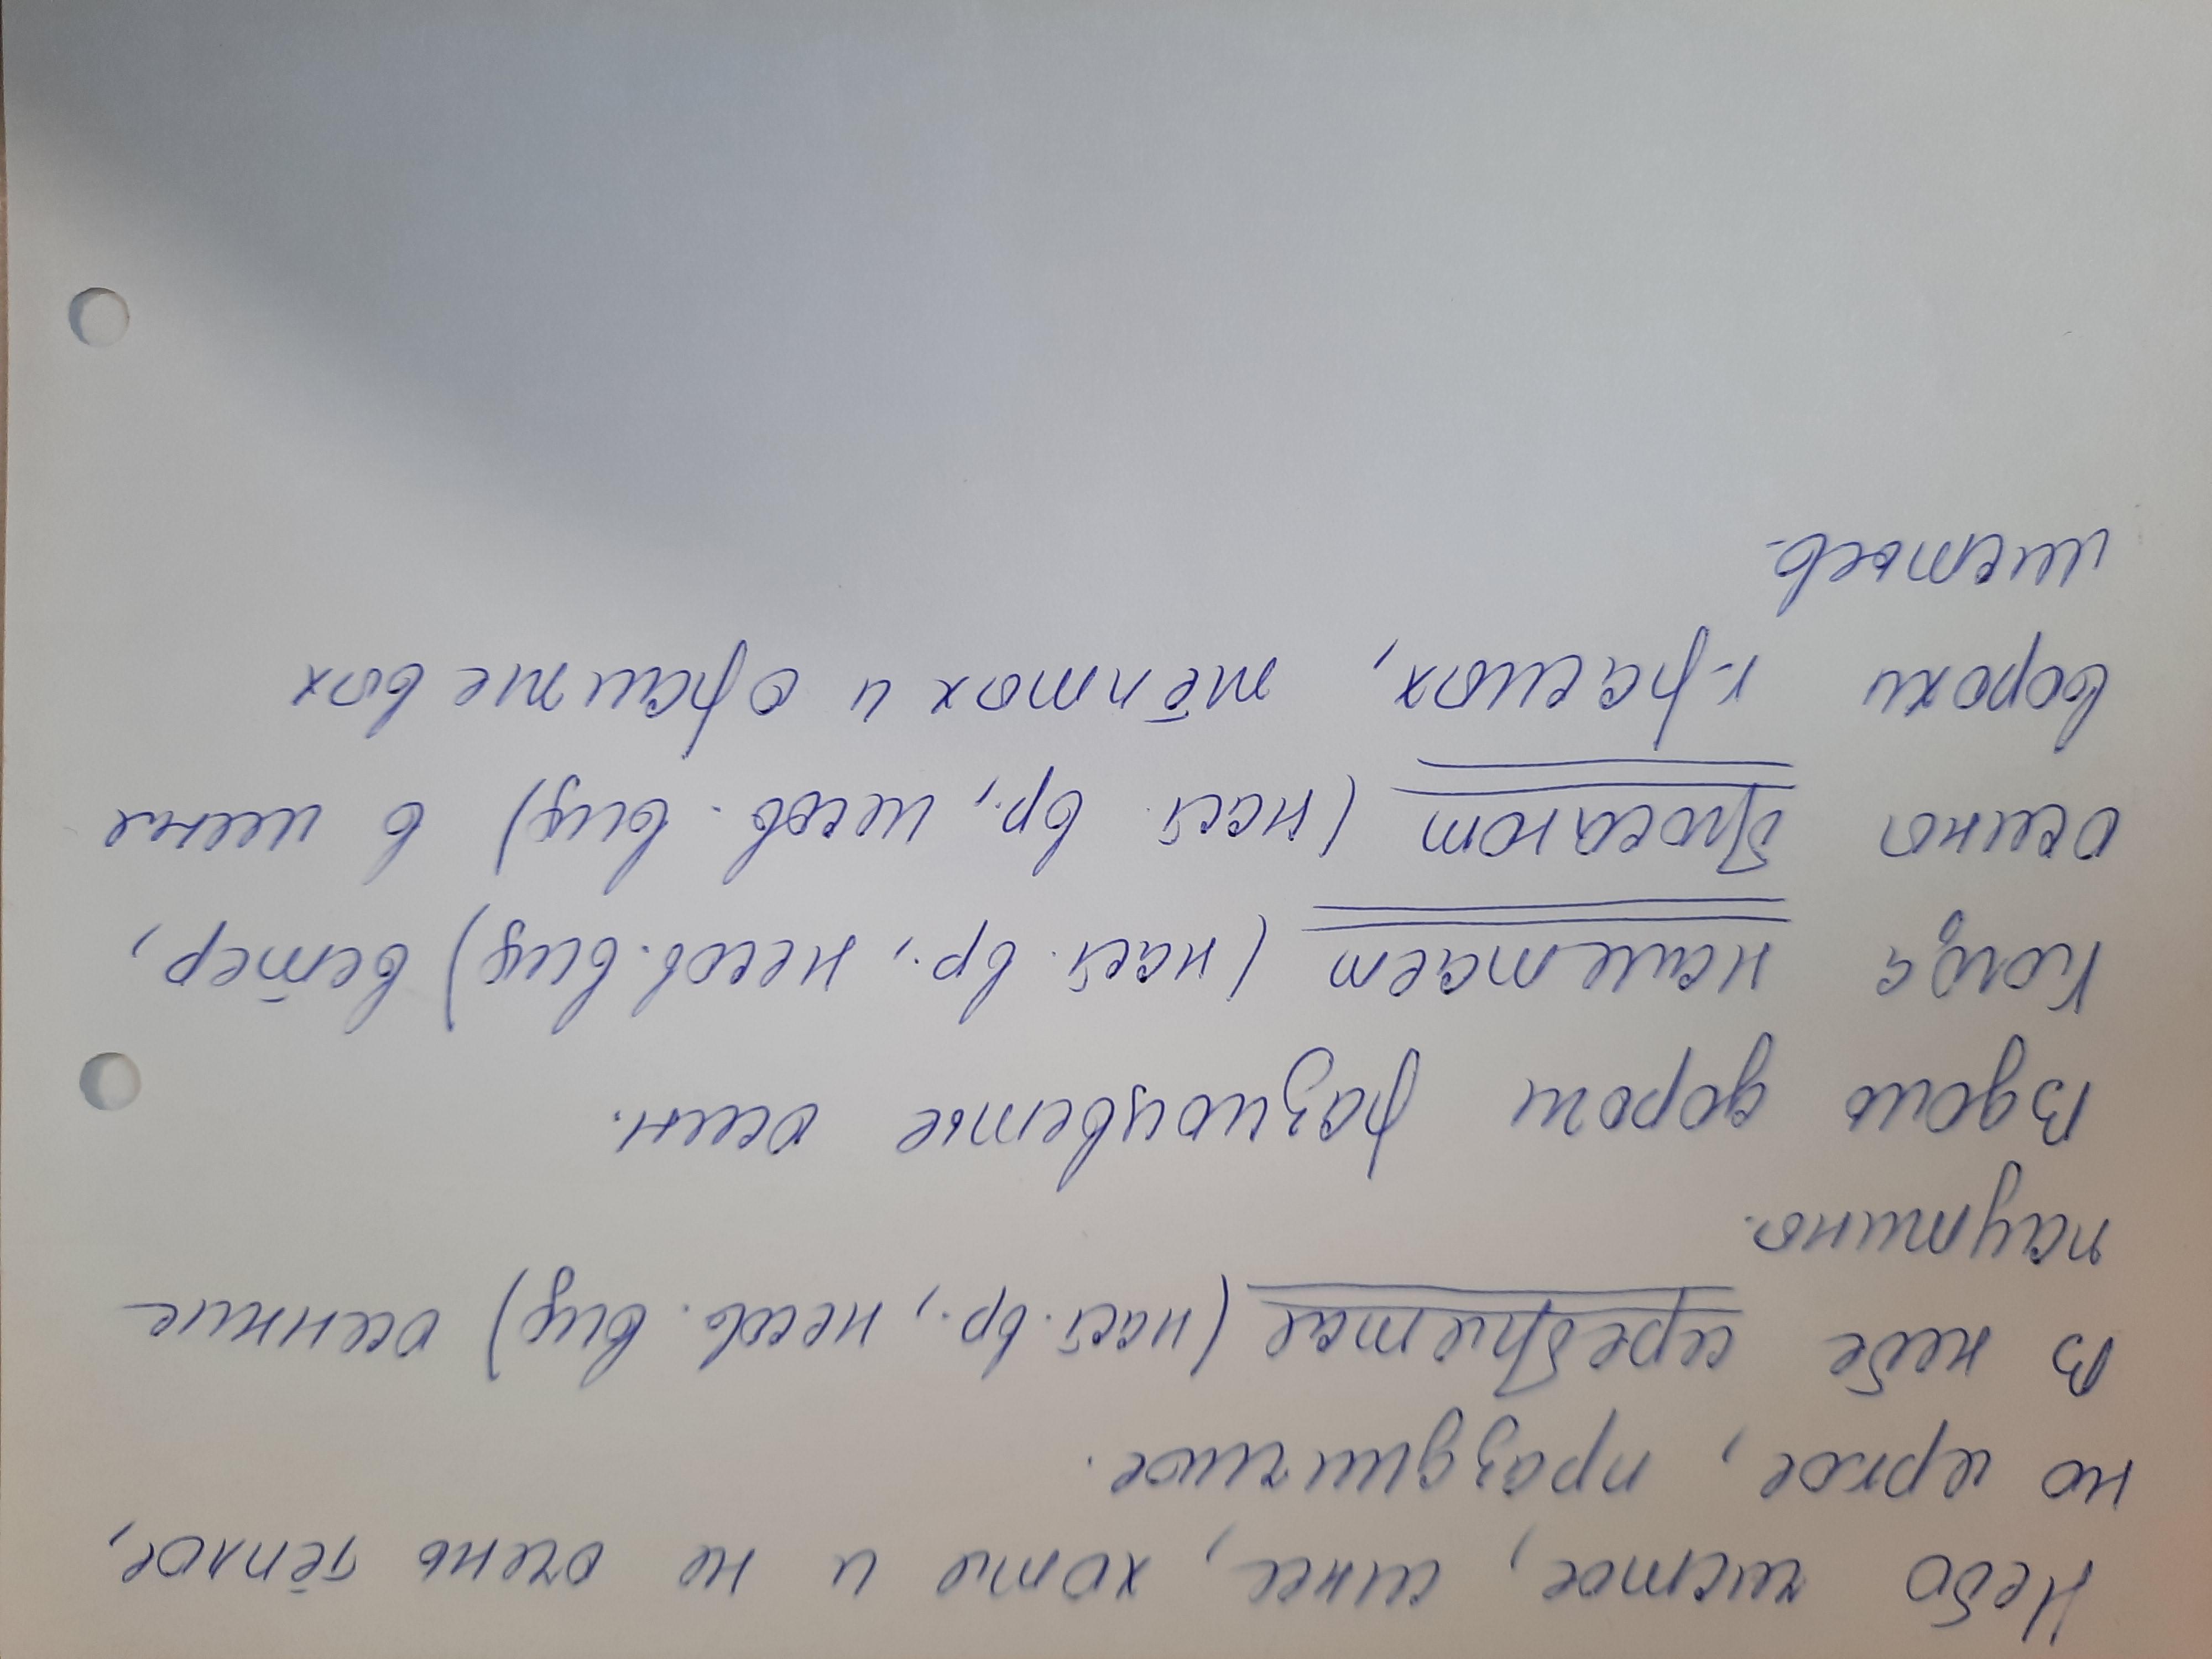 Небо чистое, синее, хотя и не очень тёплое,
но яркое, праздничное.
В небе серебристые (наст. вр., несов. вид) осенние
паутины.
Вдоль дороги разноцветье осин.
Когда налетает (наст. вр., несов. вид) ветер,
осины бросают (наст. вр., несов. вид) в
вороха красных, жёлтых и оранжевых
листьев.